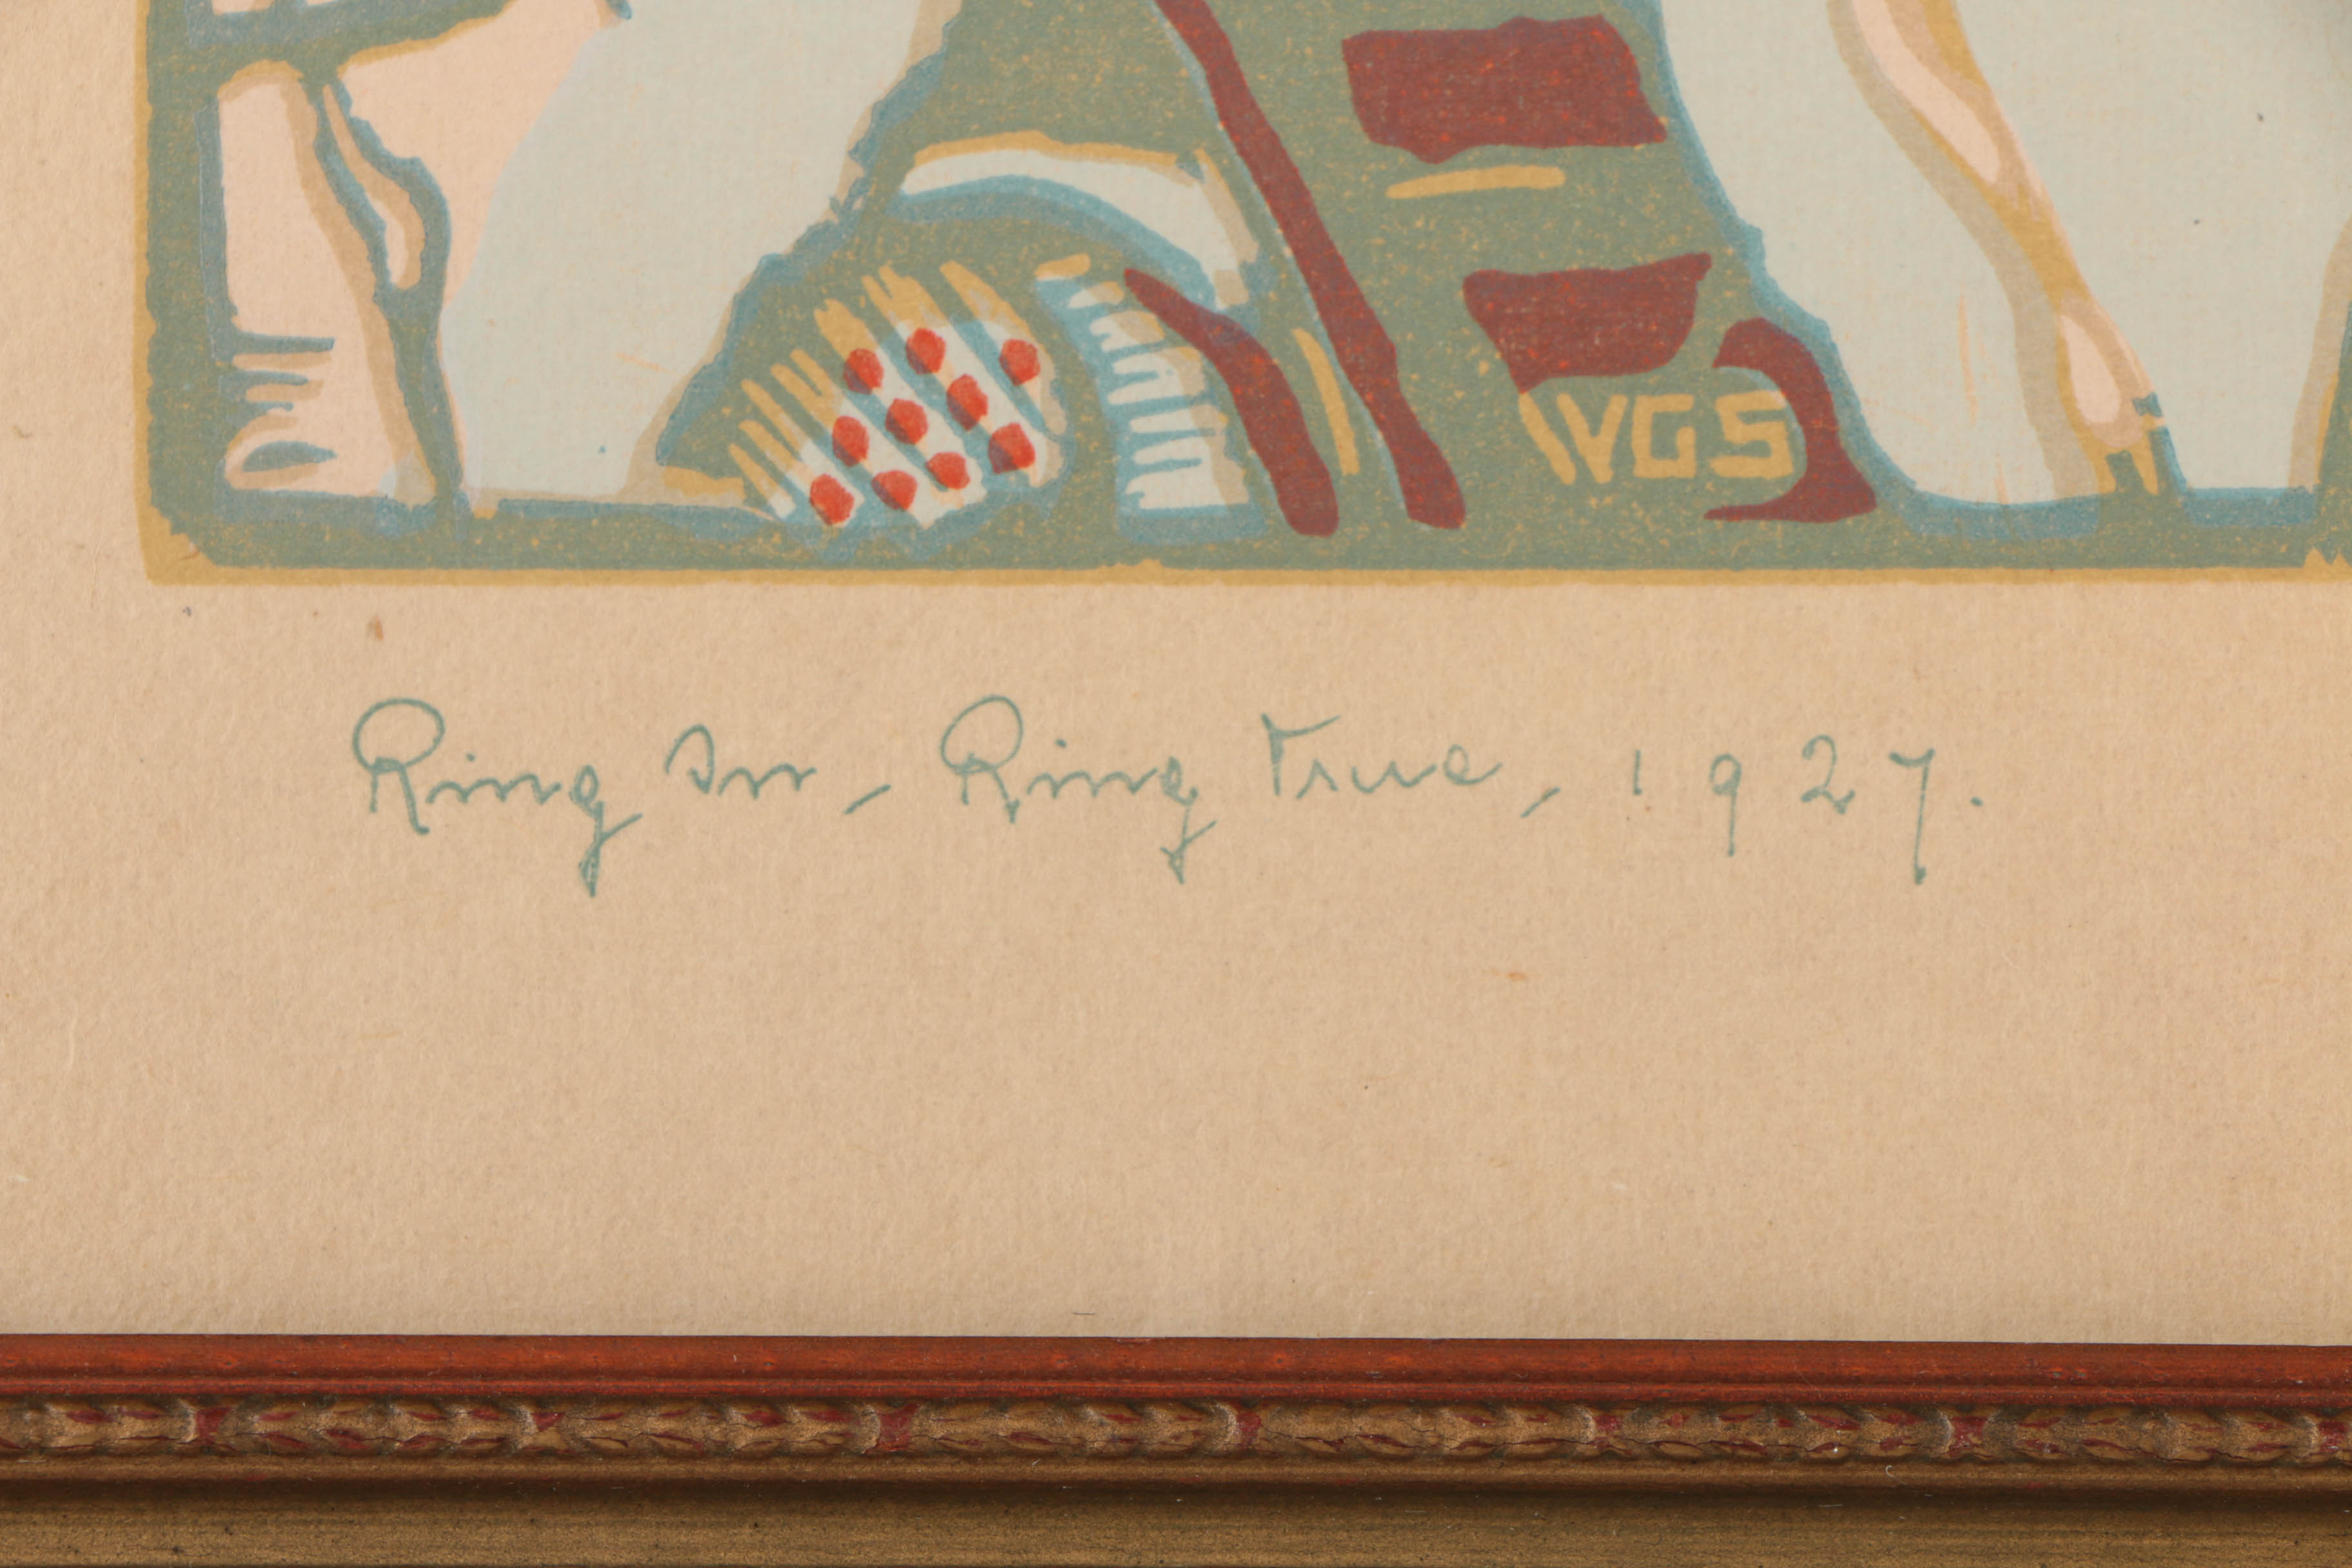 WGS
Ring In – Ring True, 1927.